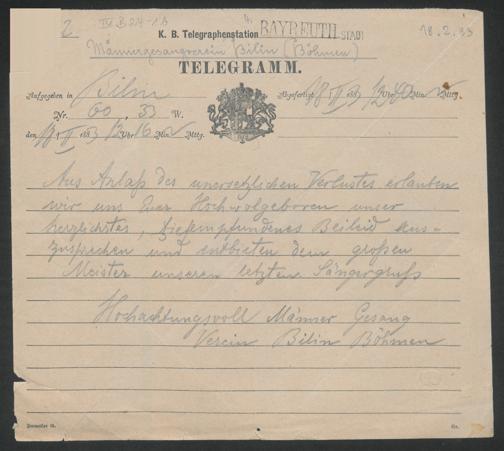 2 IV B 24-1.6 18.2.33
K. B. Telegraphenstation BAYREUTH STADT
Männergesangverein Bilin (Böhmen)
TELEGRAMM.
Aufgegeben in Bilin
Abgefertigt 18 II 83 Uhr Min Mttg.
Nr. 60, 33 W.
den 18 II 83 12 Uhr 16 Min Mttg.
Aus Anlaß des unersetzlichen Verlustes erlauben
wir uns Euer Hochwolgeboren unser
herzlichstes, tiefempfundenes Beileid aus-
zusprechen und entbieten dem großen
Meister unseren letzten Sängergruß
Hochachtungsvoll Männer Gesang
Verein Bilin Böhmen